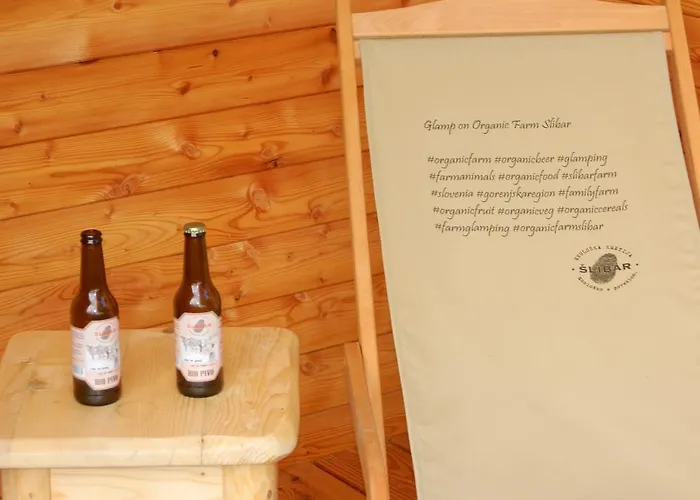 Glamp on Organic Farm Šlibar
#organicfarm #organicbeer #glamping
#farmanimals #organicfood #slibarfarm
#slovenia #gorenjskaregion #familyfarm
#organicfruit #organicveg #organiccereals
#farmglamping #organicfarmslibar
EKOLOŠKA KMETIJA
· ŠLIBAR ·
ŠLIBAR
BIO PIVO
ŠLIBAR
BIO PIVO